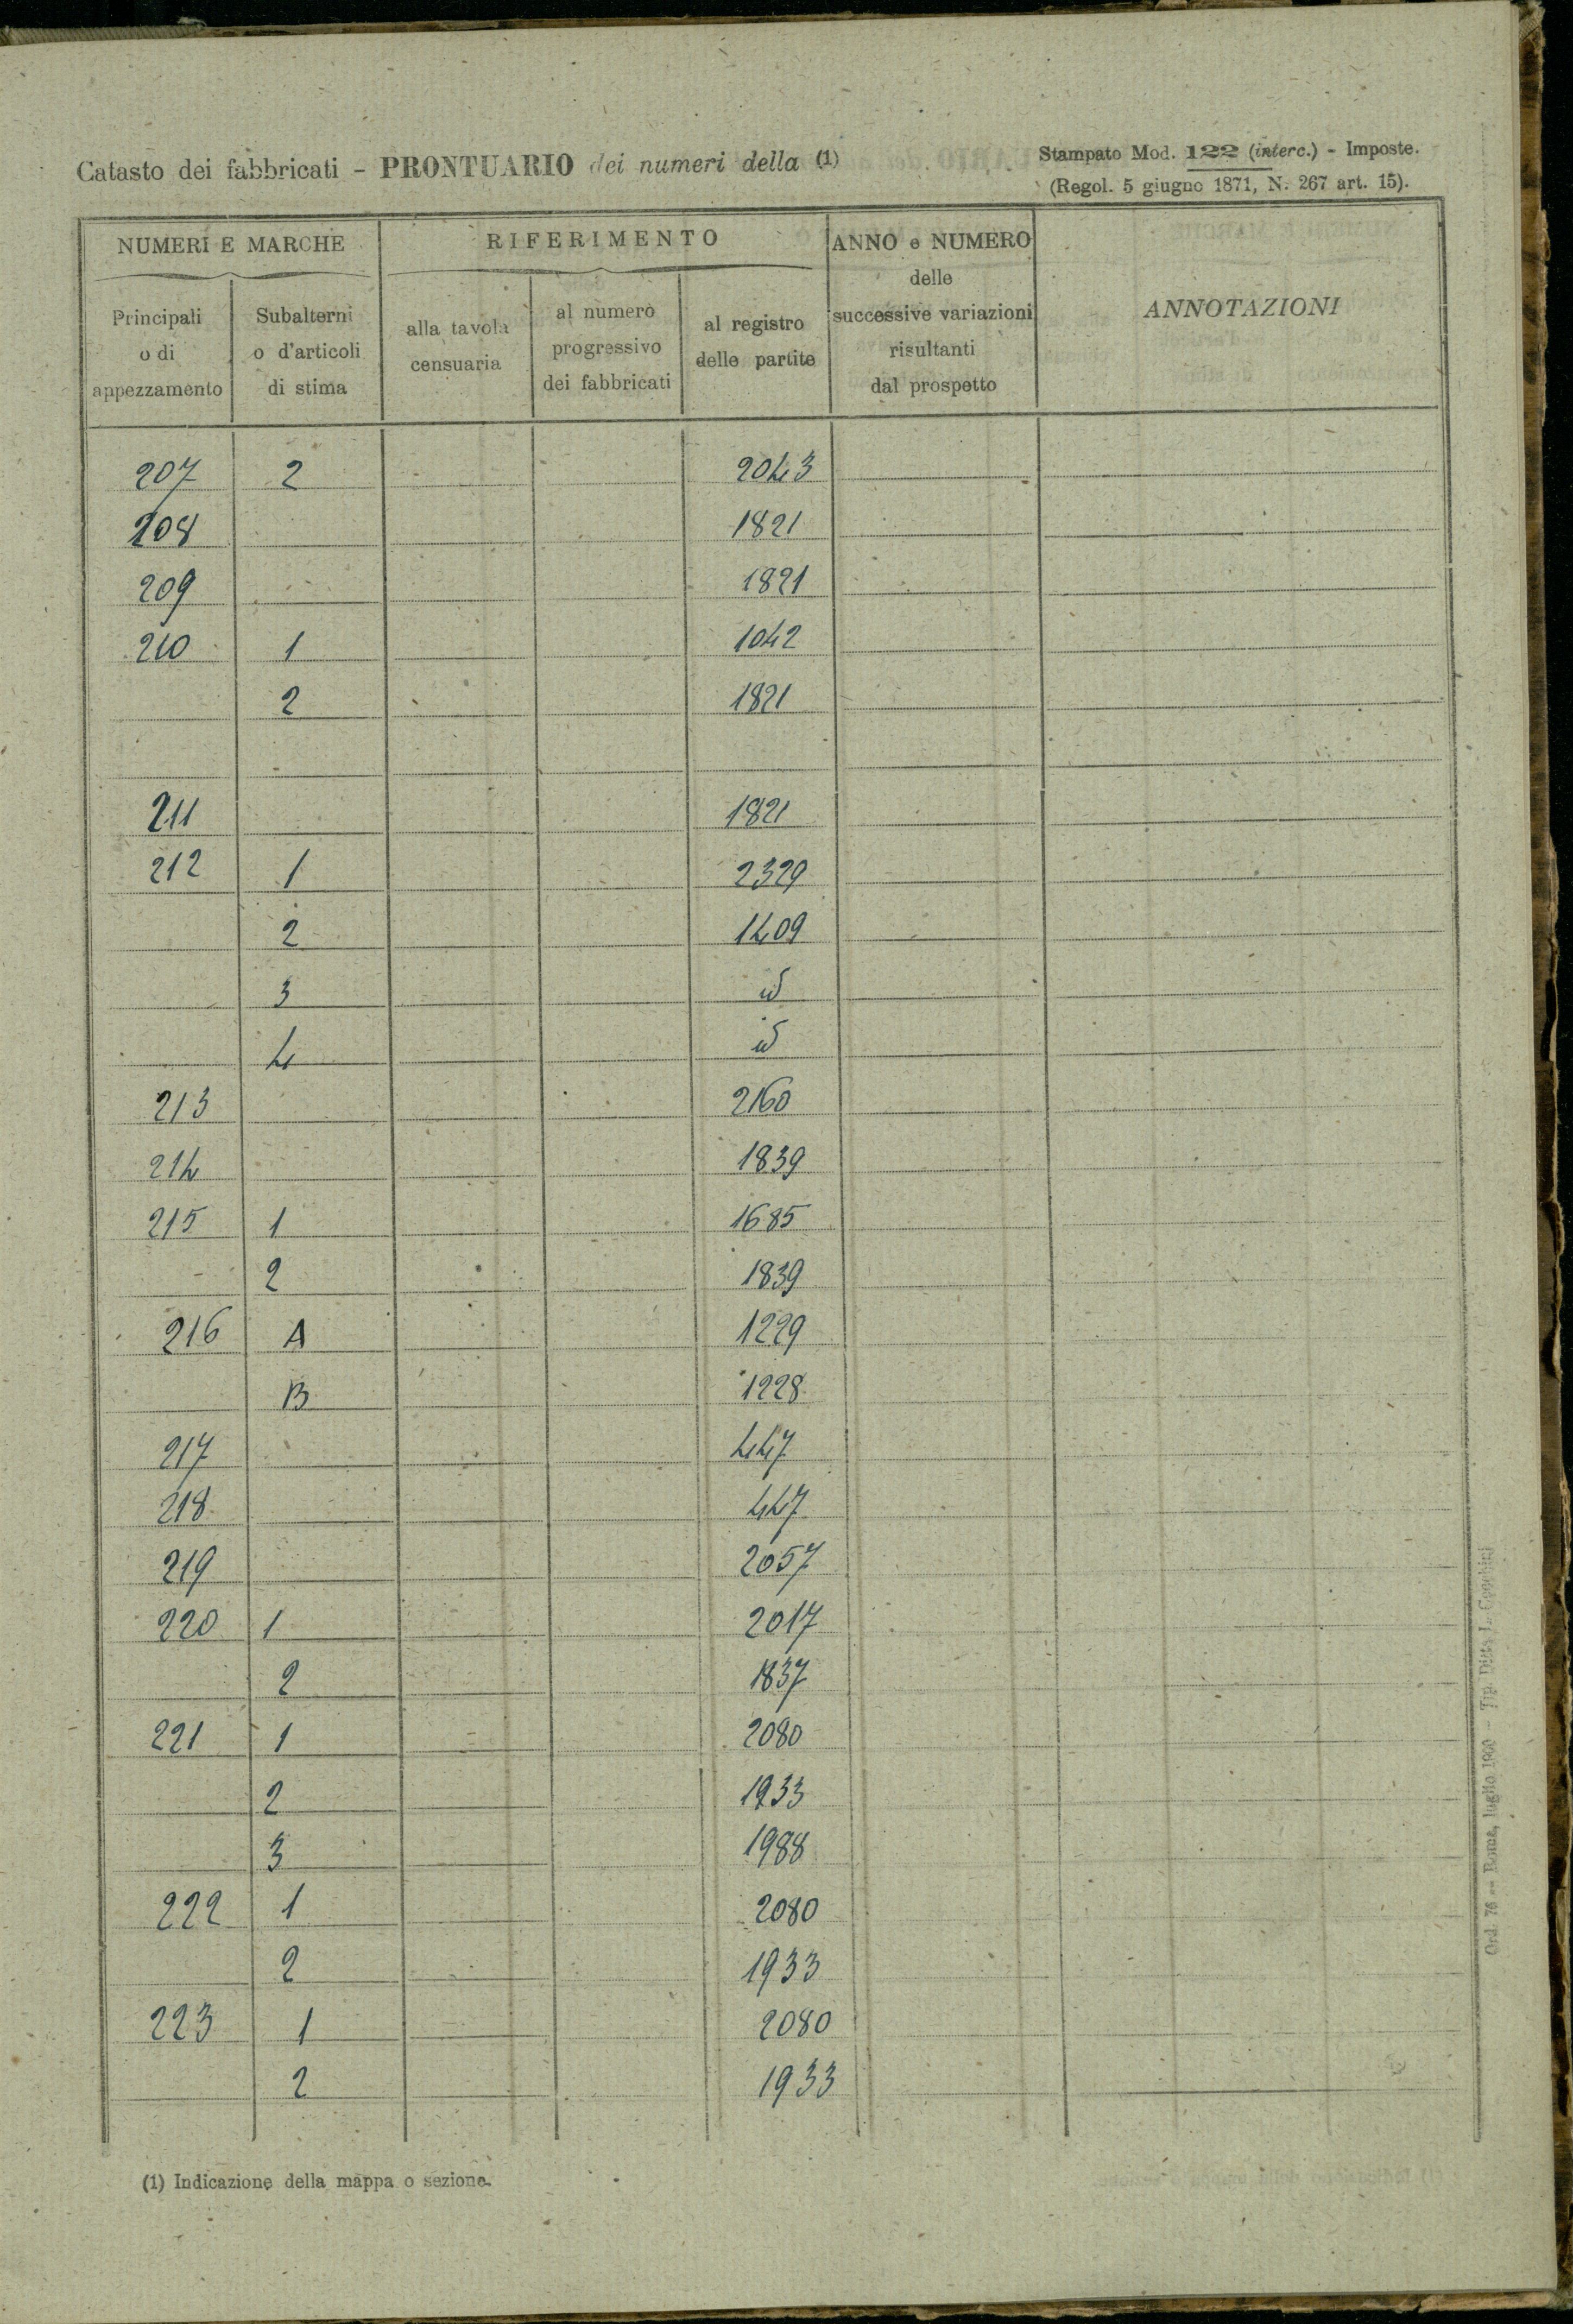 Catasto dei fabbricati - PRONTUARIO dei numeri della (1)
Stampato Mod. 122 (interc.) - Imposte.
(Regol. 5 giugno 1871, N. 267 art. 15).
NUMERI E MARCHE
Principali o di appezzamento
Subalterni o d'articoli di stima
RIFERIMENTO
alla tavola censuaria
al numero progressivo dei fabbricati
al registro delle partite
ANNO e NUMERO delle successive variazioni risultanti dal prospetto
ANNOTAZIONI
207 2 2043
208 1821
209 1821
210 1 1042
2 1821
211 1821
212 1 2329
2 1409
3 id
4 id
213 2160
214 1839
215 1 1685
2 1839
216 A 1229
B 1228
217 447
218 447
219 2057
220 1 2017
2 1837
221 1 2080
2 1933
3 1988
222 1 2080
2 1933
223 1 2080
2 1933
(1) Indicazione della mappa o sezione.
Ord. 76 - Roma, luglio 1900 - Tip. Ditta L. Cecchini